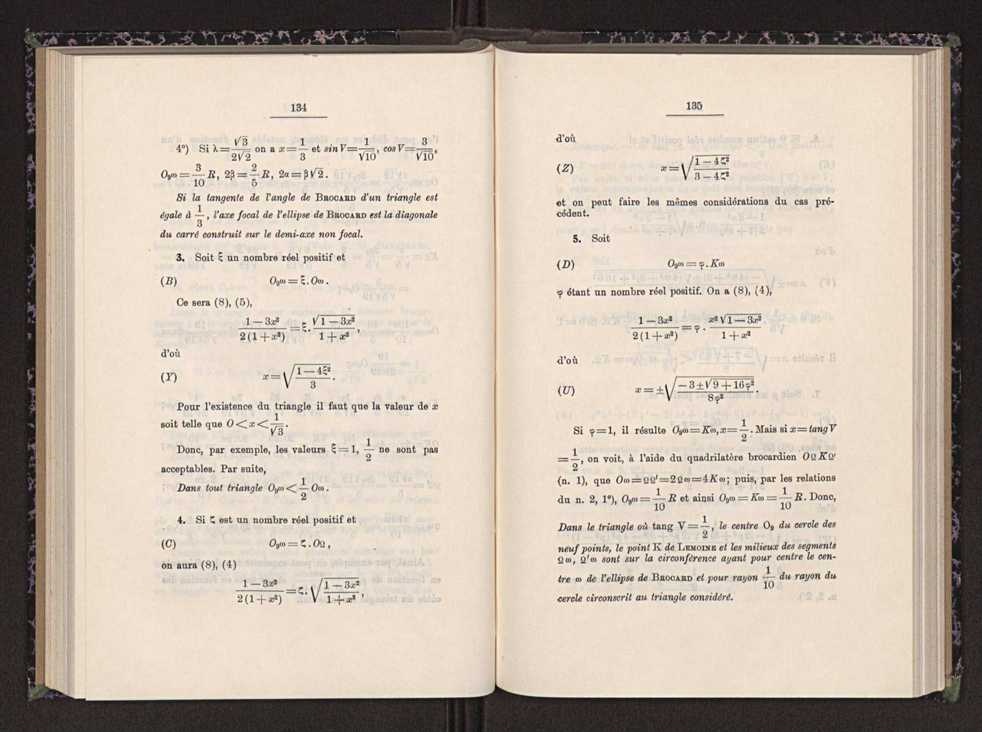 134
4º) Si λ = √3/2√2 on a x = 1/3 et sin V = 1/√10, cos V = 3/√10,
O₉ω = 3/10 R, 2β = 2/5 R, 2α = β√2.
Si la tangente de l'angle de BROCARD d'un triangle est
égale à 1/3, l'axe focal de l'ellipse de BROCARD est la diagonale
du carré construit sur le demi-axe non focal.
3. Soit ξ un nombre réel positif et
(B) O₉ω = ξ.Oω.
Ce sera (8), (5),
1 — 3x²/2(1 + x²) = ξ. √1 — 3x²/1 + x²,
d'où
(Y) x = √(1 — 4ξ²/3).
Pour l'existence du triangle il faut que la valeur de x
soit telle que O < x < 1/√3.
Donc, par exemple, les valeurs ξ = 1, 1/2 ne sont pas
acceptables. Par suite,
Dans tout triangle O₉ω < 1/2 Oω.
4. Si ζ est un nombre réel positif et
(C) O₉ω = ζ.OΩ,
on aura (8), (4)
1 — 3x²/2(1 + x²) = ζ. √(1 — 3x²/1 + x²),
135
d'où
(Z) x = √(1 — 4ζ²/3 — 4ζ²)
et on peut faire les mêmes considérations du cas pré-
cédent.
5. Soit
(D) O₉ω = φ.Kω
φ étant un nombre réel positif. On a (8), (4),
1 — 3x²/2(1 + x²) = φ. x²√1 — 3x²/1 + x²
d'où
(U) x = ±√(— 3 ± √9 + 16φ²/8φ²).
Si φ = 1, il résulte O₉ω = Kω, x = 1/2. Mais si x = tang V
= 1/2, on voit, à l'aide du quadrilatère brocardien OΩKΩ'
(n. 1), que Oω = ΩΩ' = 2Ωω = 4Kω; puis, par les relations
du n. 2, 1º), O₉ω = 1/10 R et ainsi O₉ω = Kω = 1/10 R. Donc,
Dans le triangle où tang V = 1/2, le centre O₉ du cercle des
neuf points, le point K de LEMOINE et les milieux des segments
Ωω, Ω'ω sont sur la circonférence ayant pour centre le cen-
tre ω de l'ellipse de BROCARD et pour rayon 1/10 du rayon du
cercle circonscrit au triangle considéré.